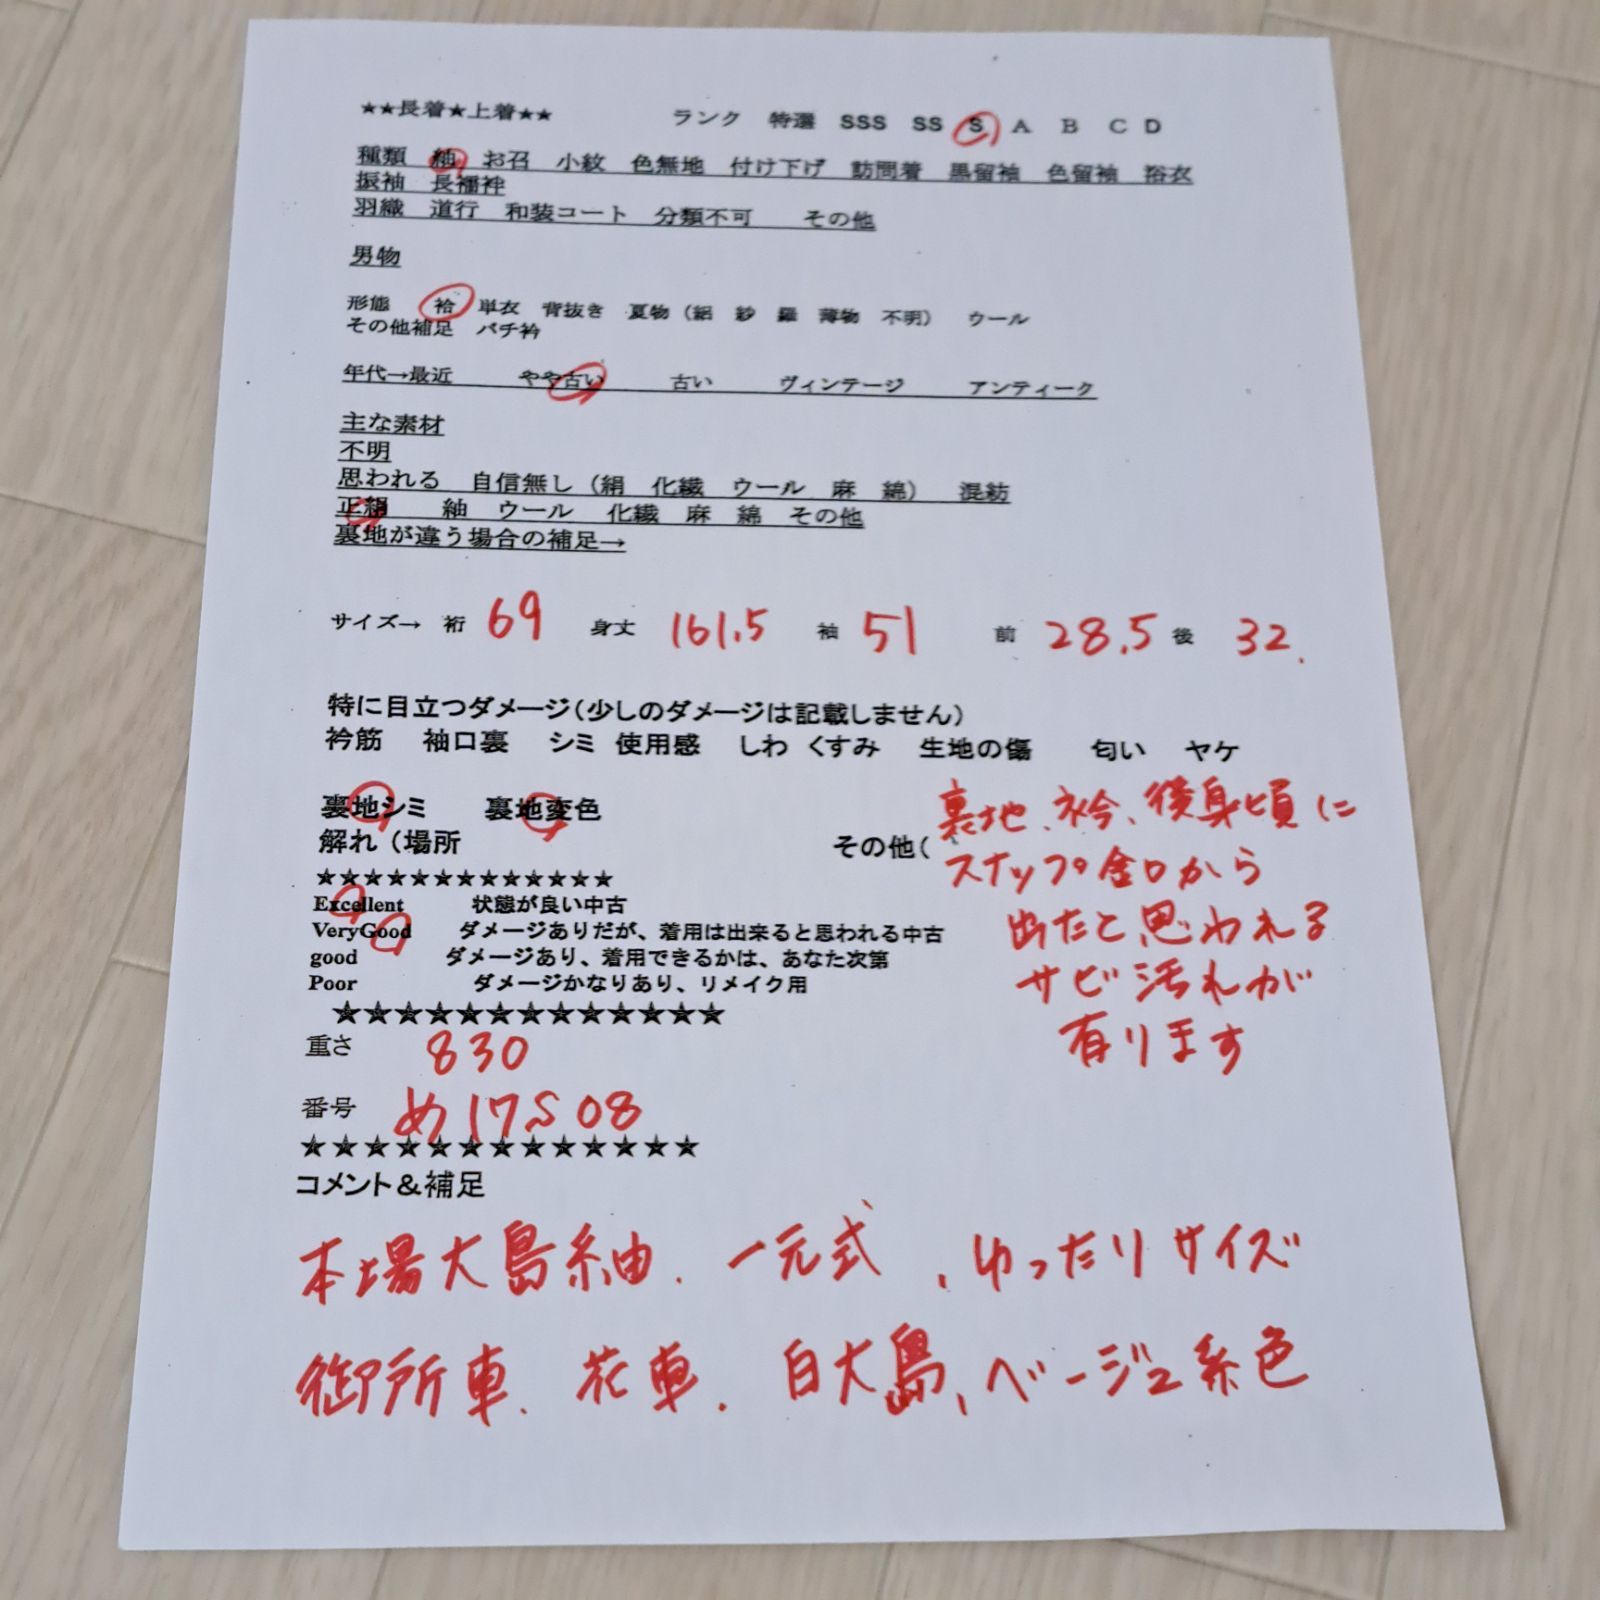 ★★長着★上着★★ ランク 特選 SSS SS S A B C D
種類 紬 お召 小紋 色無地 付け下げ 訪問着 黒留袖 色留袖 浴衣
振袖 長襦袢
羽織 道行 和装コート 分類不可 その他
男物
形態 袷 単衣 背抜き 夏物（絽 紗 羅 薄物 不明） ウール
その他補足 バチ衿
年代→最近 やや古い 古い ヴィンテージ アンティーク
主な素材
不明
思われる 自信無し（絹 化繊 ウール 麻 綿） 混紡
正絹 紬 ウール 化繊 麻 綿 その他
裏地が違う場合の補足→
サイズ→ 裄 69 身丈 161.5 袖 51 前 28.5 後 32.
特に目立つダメージ（少しのダメージは記載しません）
衿筋 袖口裏 シミ 使用感 しわ くすみ 生地の傷 匂い ヤケ
裏地シミ 裏地変色
解れ（場所 その他（
裏地、衿、後身頃に
スナップ金口から
出たと思われる
サビ汚れが
有ります
★★★★★★★★★★★★★
Excellent 状態が良い中古
VeryGood ダメージありだが、着用は出来ると思われる中古
good ダメージあり、着用できるかは、あなた次第
Poor ダメージかなりあり、リメイク用
★★★★★★★★★★★★★
重さ 830
番号 め17S08
★★★★★★★★★★★★★
コメント＆補足
本場大島紬、一元式、ゆったりサイズ
御所車、花車、白大島、ベージュ系色